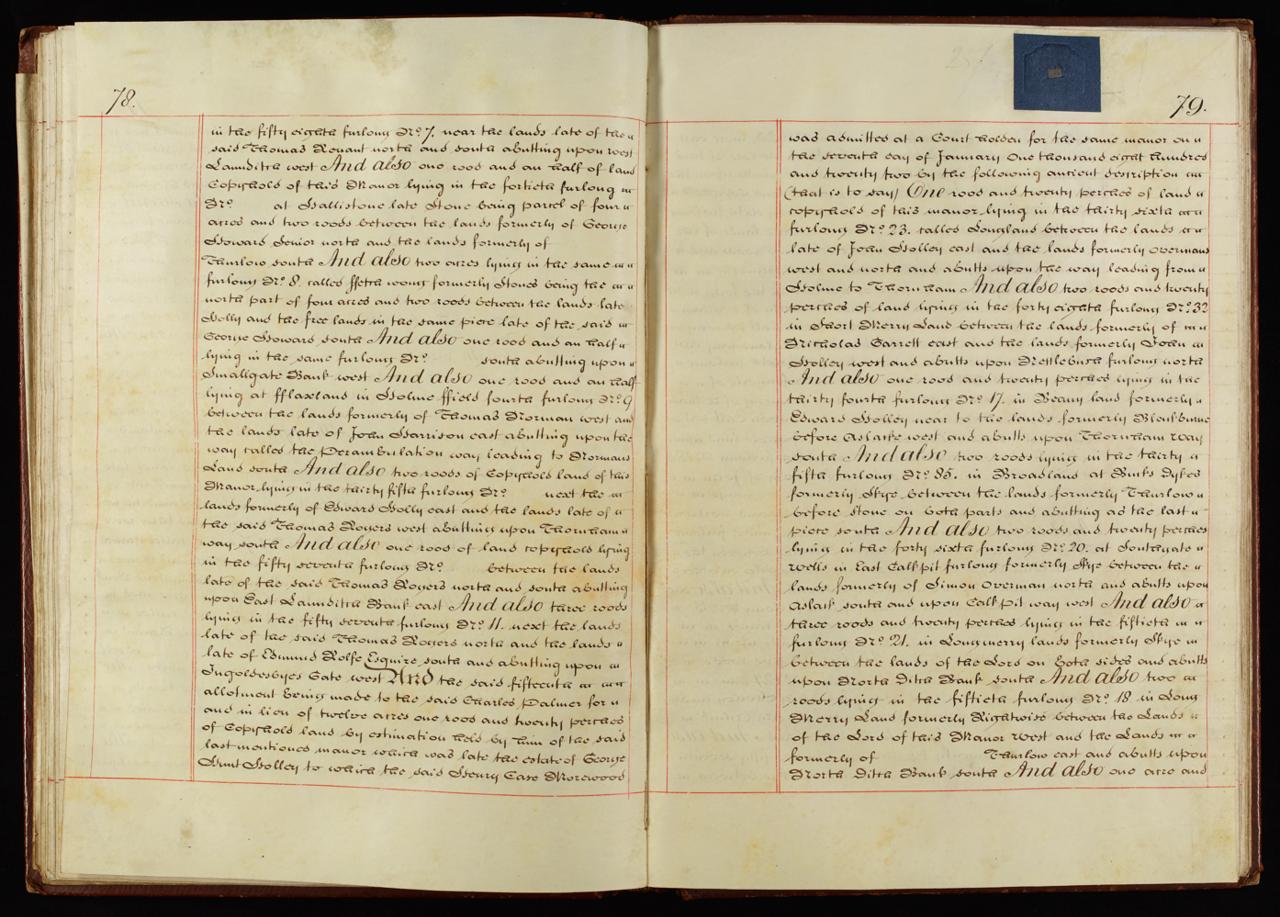 78.
in the fifty eighth furlong No. 7. near the lands late of the
said Thomas north and south abutting upon west
Launditch west And also one rood and an half of land
Copyhold of this Manor lying in the fortieth furlong
No. at Hallistone late Stone being parcel of four
acres and two roods between the lands formerly of George
Howard Senior north and the lands formerly of
Thurlow south And also two acres lying in the same
furlong No. 8. called ffeth wong formerly Stones being the
north part of four acres and two roods between the lands late
Holly and the free lands in the same piece late of the said
George Howard south And also one rood and an half
lying in the same furlong No. south abutting upon
Smallgate Bank west And also one rood and an half
lying at fflaxland in Holme ffield fourth furlong No. 9
between the lands formerly of Thomas Norman west and
the lands late of John Harrison east abutting upon the
way called the Perambulation way leading to Normans
Land south And also two roods of Copyhold land of this
Manor lying in the thirty fifth furlong No. next the
lands formerly of Edward Holly east and the lands late of
the said Thomas Rogers west abutting upon Thornham
way south And also one rood of land copyhold lying
in the fifty seventh furlong No. between the lands
late of the said Thomas Rogers north and south abutting
upon East Launditch Bank east And also three roods
lying in the fifty seventh furlong No. 11. next the lands
late of the said Thomas Rogers north and the lands
late of Edmund Rolfe Esquire south and abutting upon
Ingoldesbyes Gate west And the said fifteenth
allotment being made to the said Charles Palmer for
and in lieu of twelve acres one rood and twenty perches
of Copyhold land by estimation held by him of the said
last mentioned manor which was late the estate of George
Hunt Holley to which the said Henry Case Morewood
79.
was admitted at a Court holden for the same manor on
the seventh day of January One thousand eight hundred
and twenty two by the following ancient description
(that is to say) One rood and twenty perches of land
copyhold of this manor lying in the thirty sixth
furlong No. 23. called Longland between the lands
late of John Holley east and the lands formerly Overmans
west and north and abutts upon the way leading from
Holme to Thornham And also two roods and twenty
perches of land lying in the forty eighth furlong No. 32
in Short Merry Land between the lands formerly of
Nicholas Garrett east and the lands formerly John
Holley west and abutts upon Nettlebush furlong north
And also one rood and twenty perches lying in the
thirty fourth furlong No. 17. in Beany land formerly
Edward Holley near to the lands formerly
before Aslacke west and abutts upon Thornham way
south And also two roods lying in the thirty
fifth furlong No. 35. in Broadland at Dykes
formerly Skye between the lands formerly Thurlow
before Stone on both parts and abutting as the last
piece south And also two roods and twenty perches
lying in the forty sixth furlong No. 20. at Southgate
wells in East Calkpit furlong formerly Skye between the
lands formerly of Simon Overman north and abutts upon
Aslack south and upon Calk Pit way west And also
three roods and twenty perches lying in the fiftieth
furlong No. 21. in Longmerry lands formerly Skye
between the lands of the Lord on both sides and abutts
upon North Ditch Bank south And also two
roods lying in the fiftieth furlong No. 18 in Long
Merry Land formerly Rightwise between the Lands
of the Lord of this Manor West and the Lands
formerly of Thurlow east and abutts upon
North Ditch Bank south And also one acre and